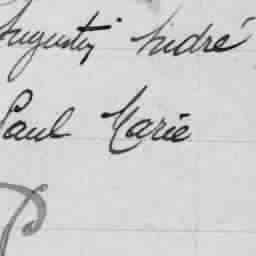 Augustin André
Paul Marie